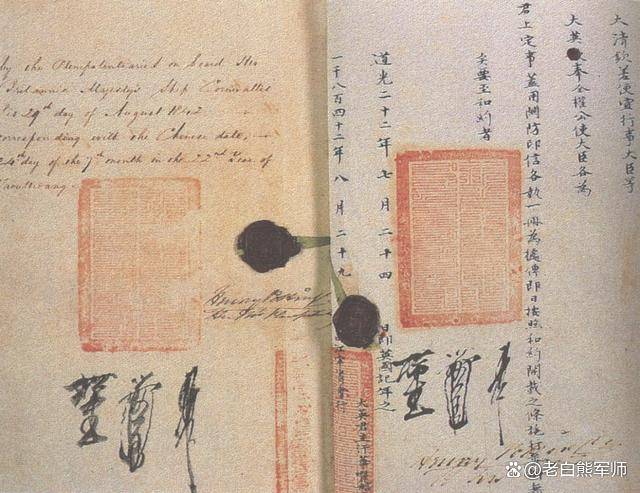 by the Plenipotentiaries on board Her
Britannic Majesty's Ship Cornwallis
this 29th day of August 1842
corresponding with the Chinese date,
24th day of the 7th month in the 22nd Year of
Taoukwang.
Henry
大清欽差便宜行事大臣等
大英奉全權公使大臣各為
君上定事蓋用關防印信各執一冊為據俾即日按照和約開載之條施行
矣要至和約者
道光二十二年七月二十四日即英國記年之
一千八百四十二年八月二十九
大英君主汗華
Henry
老白熊军师